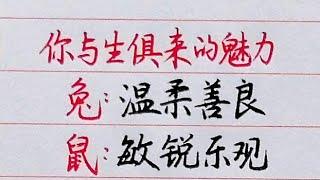 你与生俱来的魅力
兔:温柔善良
鼠:敏锐乐观